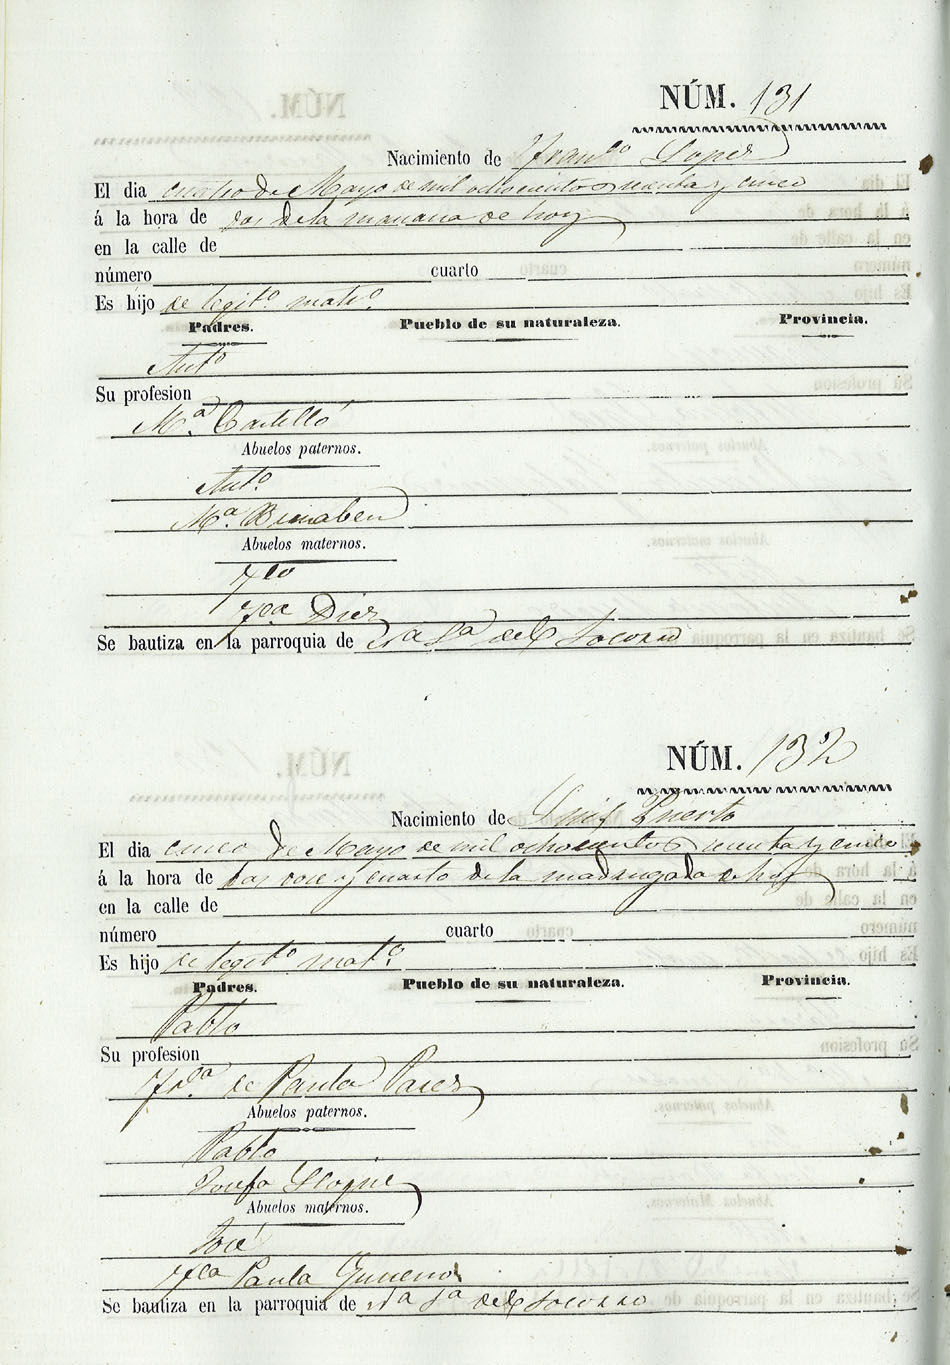 NÚM. 131
Nacimiento de Franco Lopez
El dia cuatro de Mayo de mil ochocientos sesenta y cinco
á la hora de dos de la mañana de hoy
en la calle de
número cuarto
Es hijo de legito matro
Padres. Pueblo de su naturaleza. Provincia.
Anto
Su profesion
Ma. Castelló
Abuelos paternos.
Anto
Ma.
Abuelos maternos.
Fco
Fca Diez
Se bautiza en la parroquia de Na Sa del Socorro
NÚM. 132
Nacimiento de Luis Puerto
El dia cinco de Mayo de mil ochocientos sesenta y cinco
á la hora de las doce y cuarto de la madrugada de hoy
en la calle de
número cuarto
Es hijo de legito mato
Padres. Pueblo de su naturaleza. Provincia.
Pablo
Su profesion
Fca. de Paula
Abuelos paternos.
Pablo
Josefa Llopis
Abuelos maternos.
José
Fca Paula Gimeno
Se bautiza en la parroquia de Na Sa del Socorro